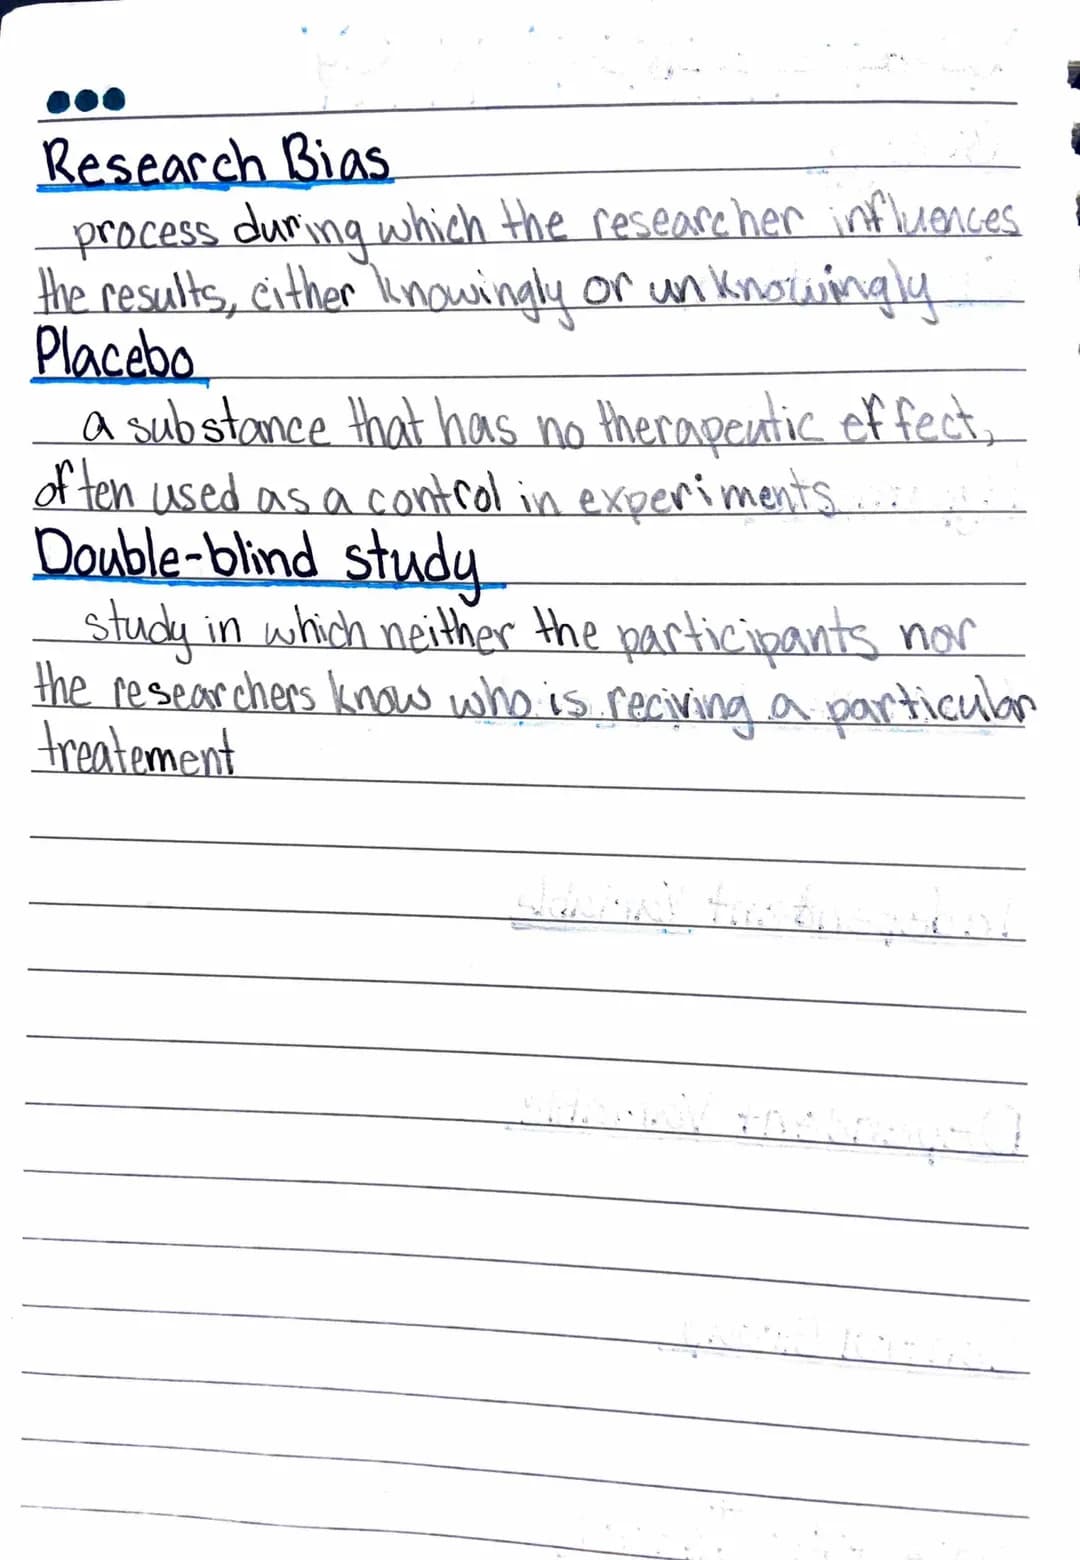 Research Bias
process during which the researcher influences
the results, either knowingly or unknowingly
Placebo
a substance that has no therapeutic effect,
often used as a control in experiments
Double-blind study
study in which neither the participants nor
the researchers know who is reciving a particular
treatement